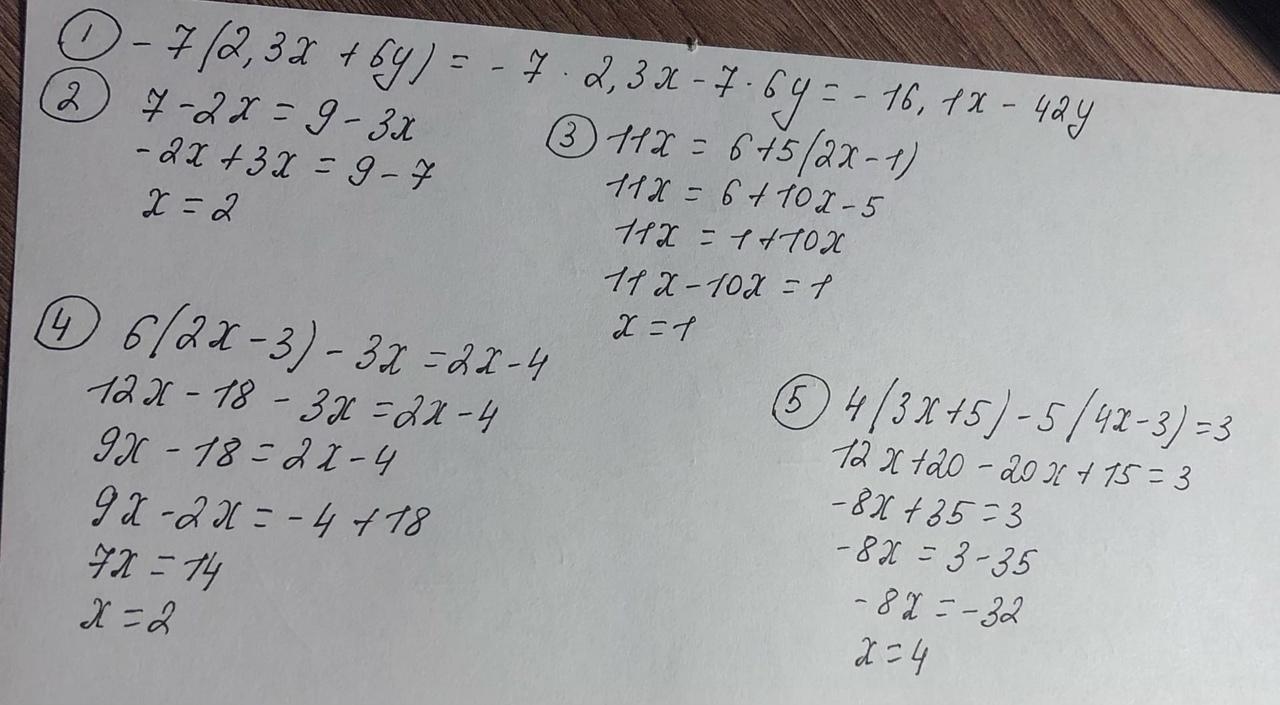 ① -7(2,3x + 6y) = -7 · 2,3x - 7 · 6y = -16,1x - 42y
② 7 - 2x = 9 - 3x
-2x + 3x = 9 - 7
x = 2
③ 11x = 6 + 5(2x - 1)
11x = 6 + 10x - 5
11x = 1 + 10x
11x - 10x = 1
x = 1
④ 6(2x - 3) - 3x = 2x - 4
12x - 18 - 3x = 2x - 4
9x - 18 = 2x - 4
9x - 2x = -4 + 18
7x = 14
x = 2
⑤ 4(3x + 5) - 5(4x - 3) = 3
12x + 20 - 20x + 15 = 3
-8x + 35 = 3
-8x = 3 - 35
-8x = -32
x = 4